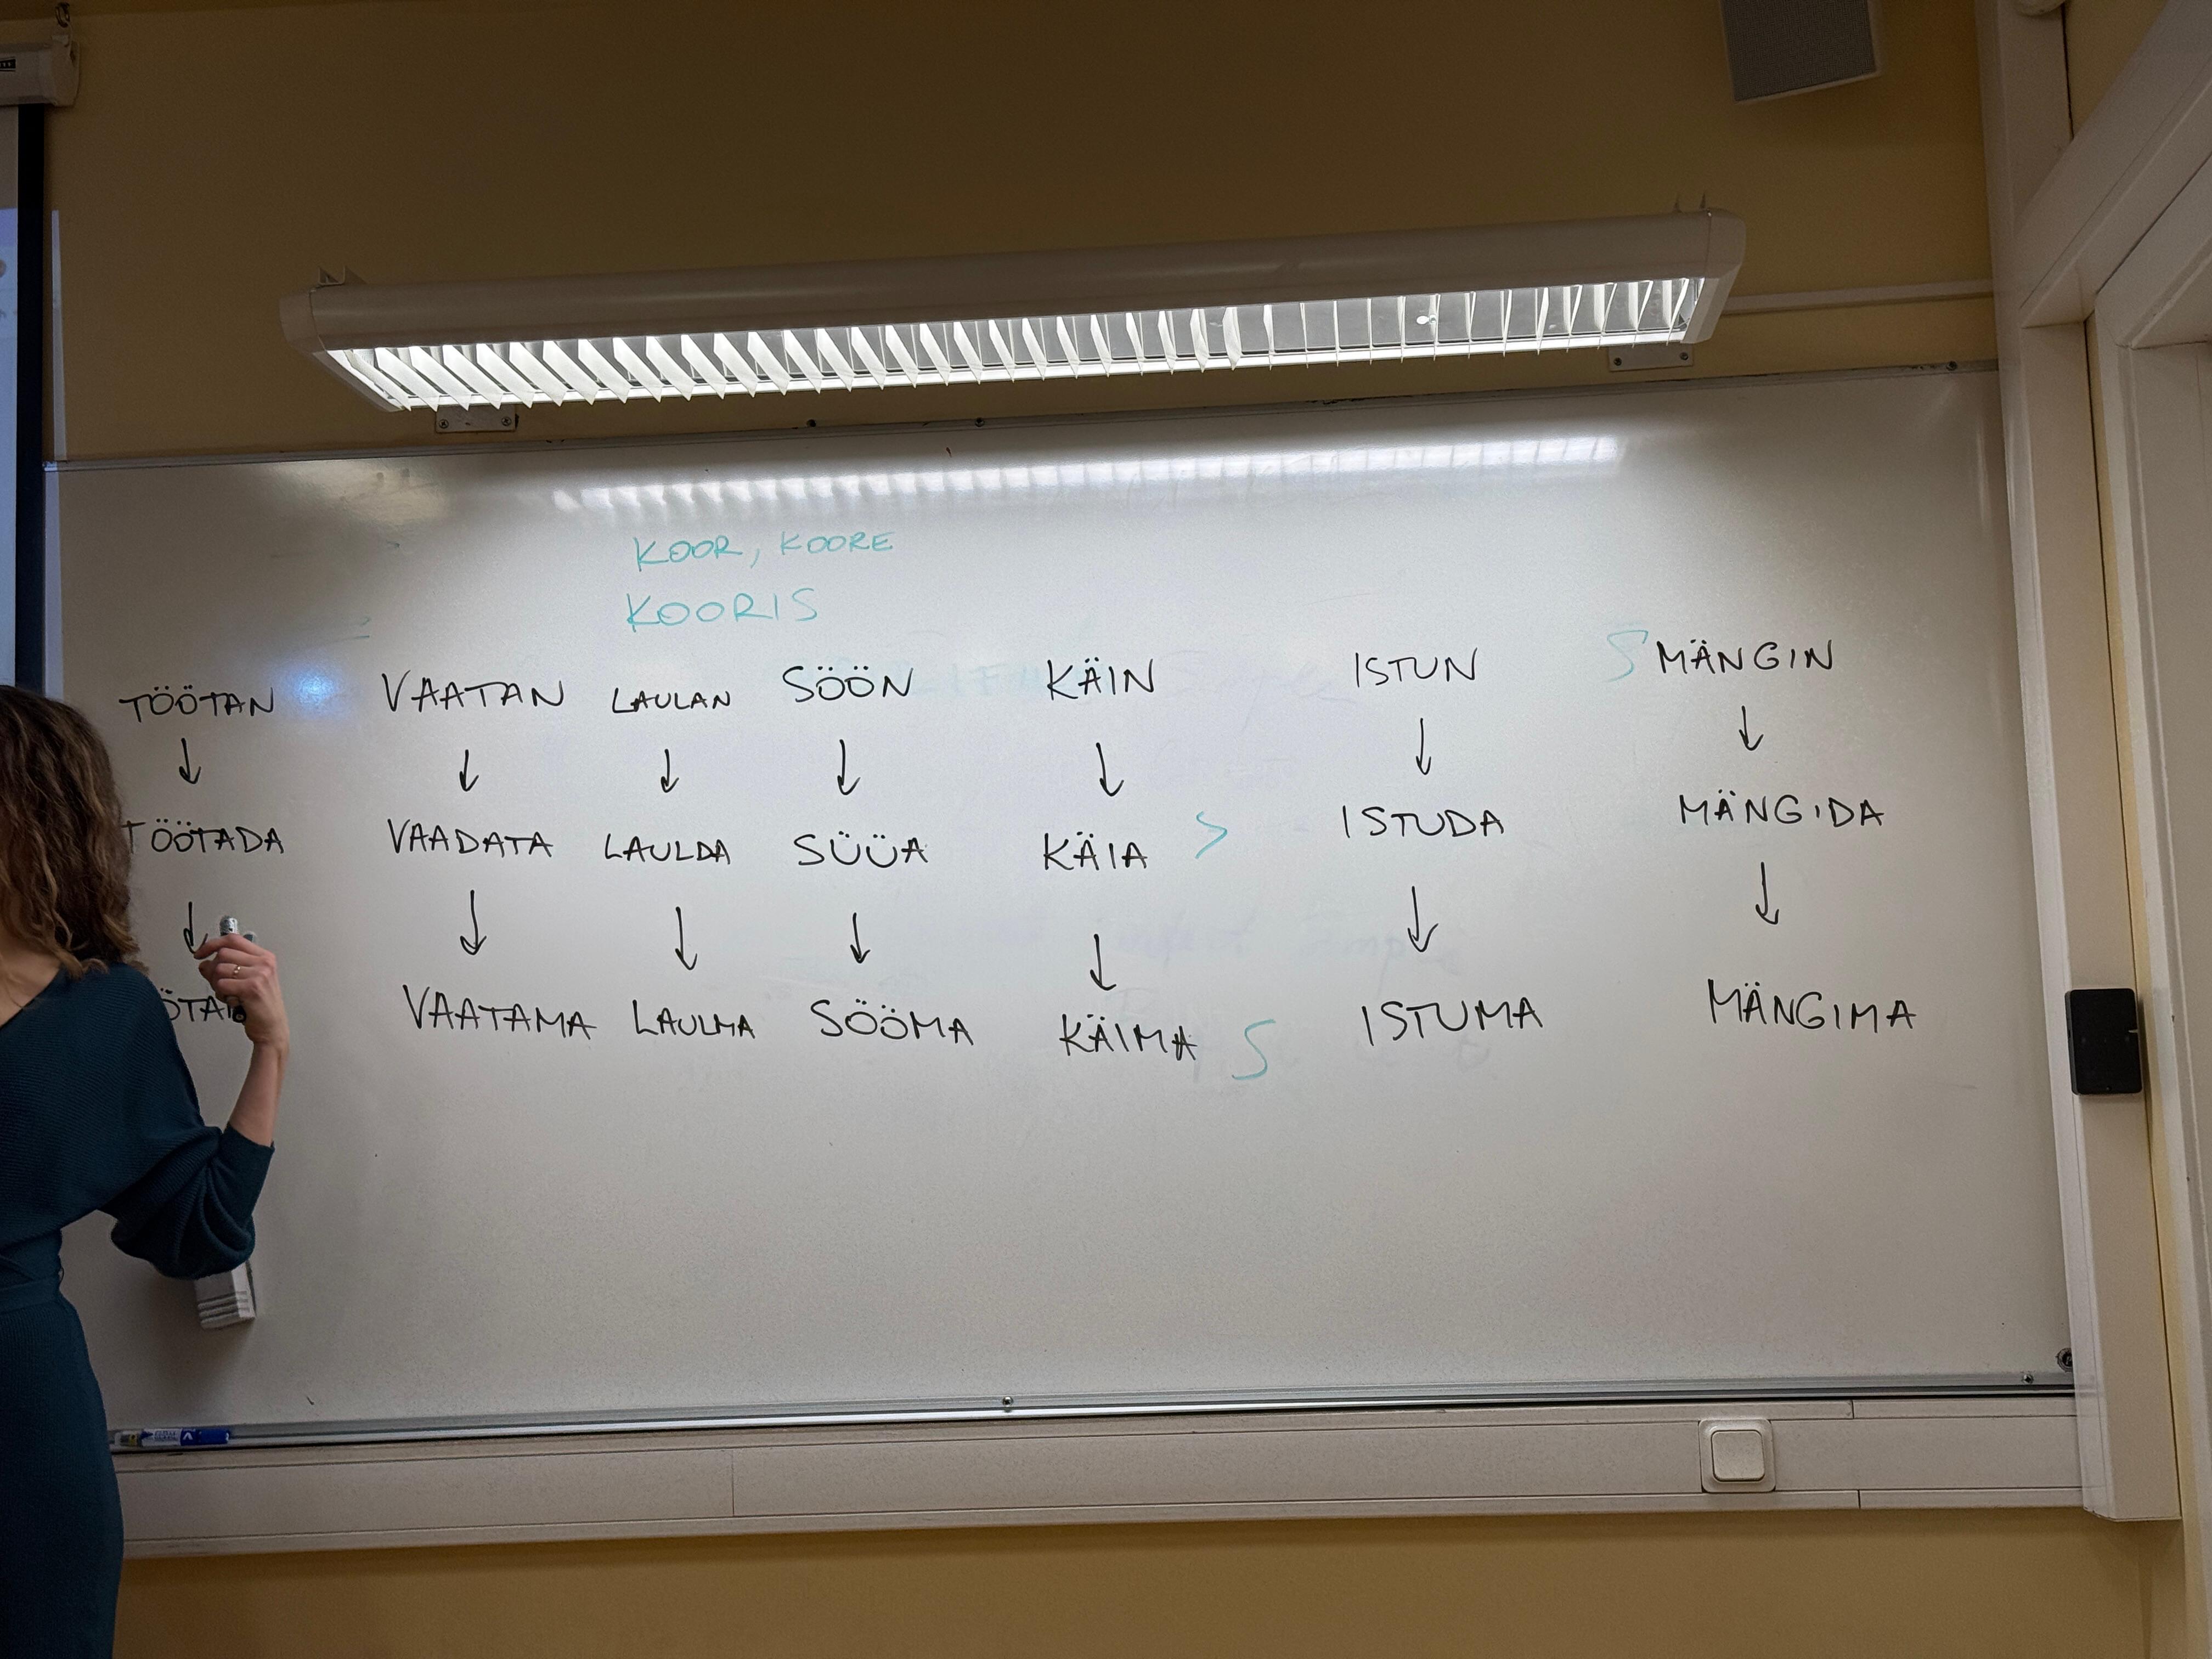 KOOR, KOORE
KOORIS
TÖÖTAN VAATAN LAULAN SÖÖN KÄIN ISTUN MÄNGIN
↓ ↓ ↓ ↓ ↓ ↓ ↓
TÖÖTADA VAADATA LAULDA SÜÜA KÄIA > ISTUDA MÄNGIDA
↓ ↓ ↓ ↓ ↓ ↓ ↓
VAATAMA LAULMA SÖÖMA KÄIMA ISTUMA MÄNGIMA